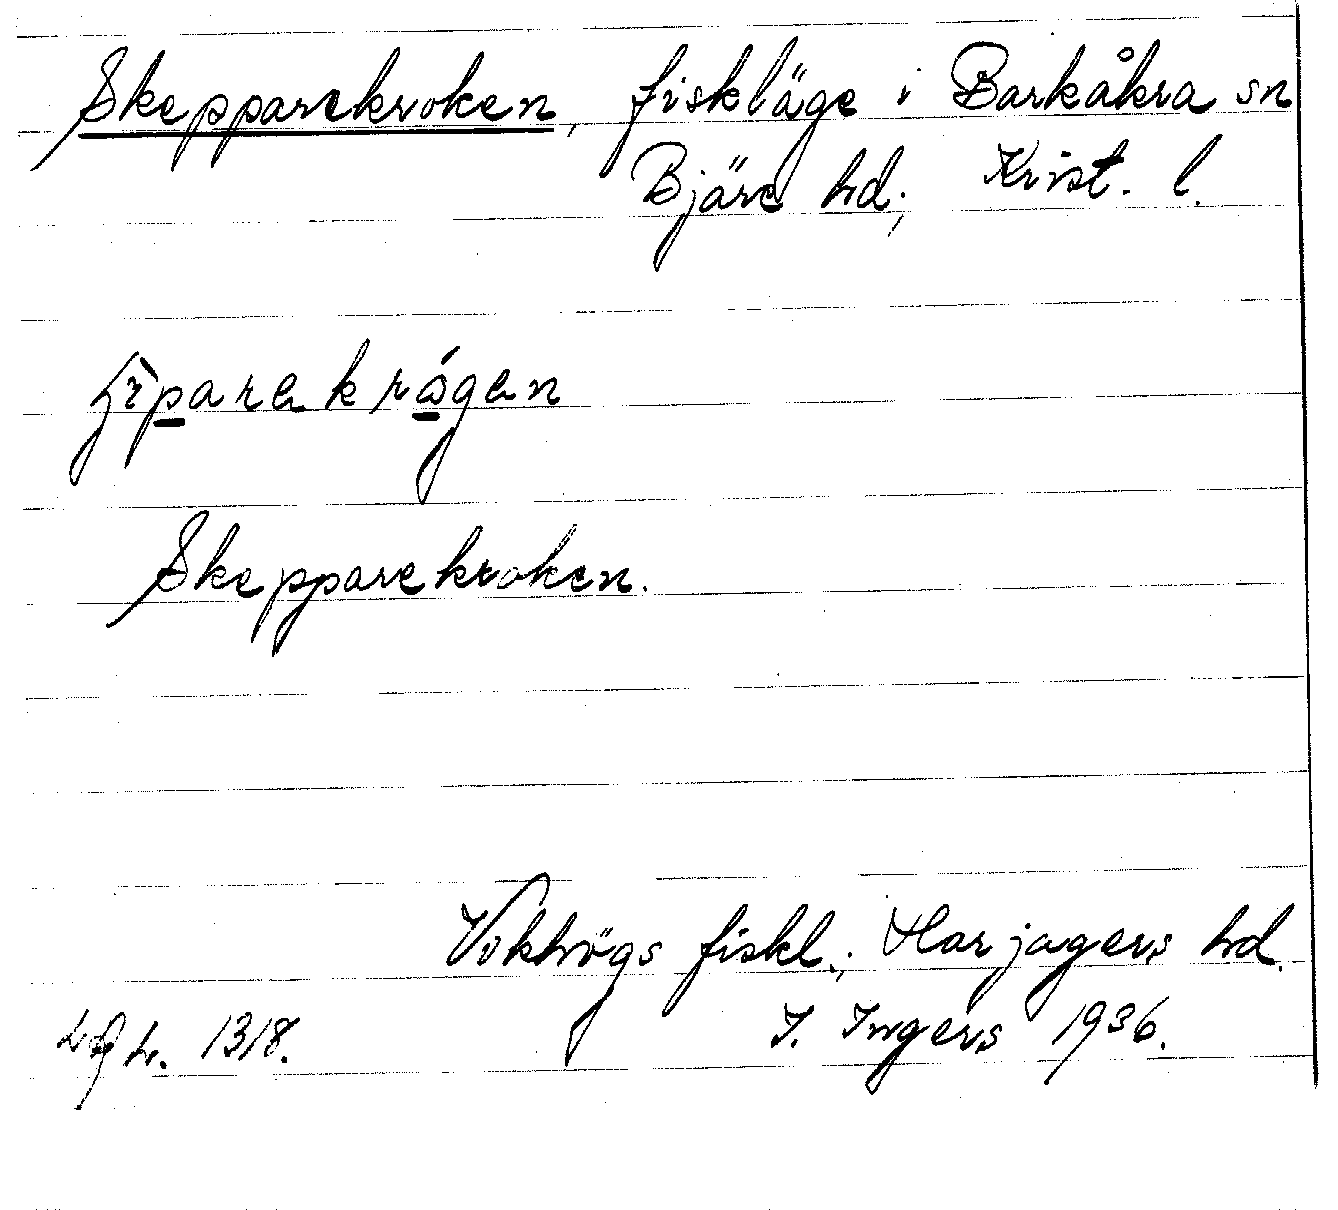 Skepparekroken, fiskläge i Barkåkra sn
Bjäre hd; Krist. l.
Skepparekroken.
Vikhögs fiskl.; Harjagers hd.
1318. I. Ingers 1936.